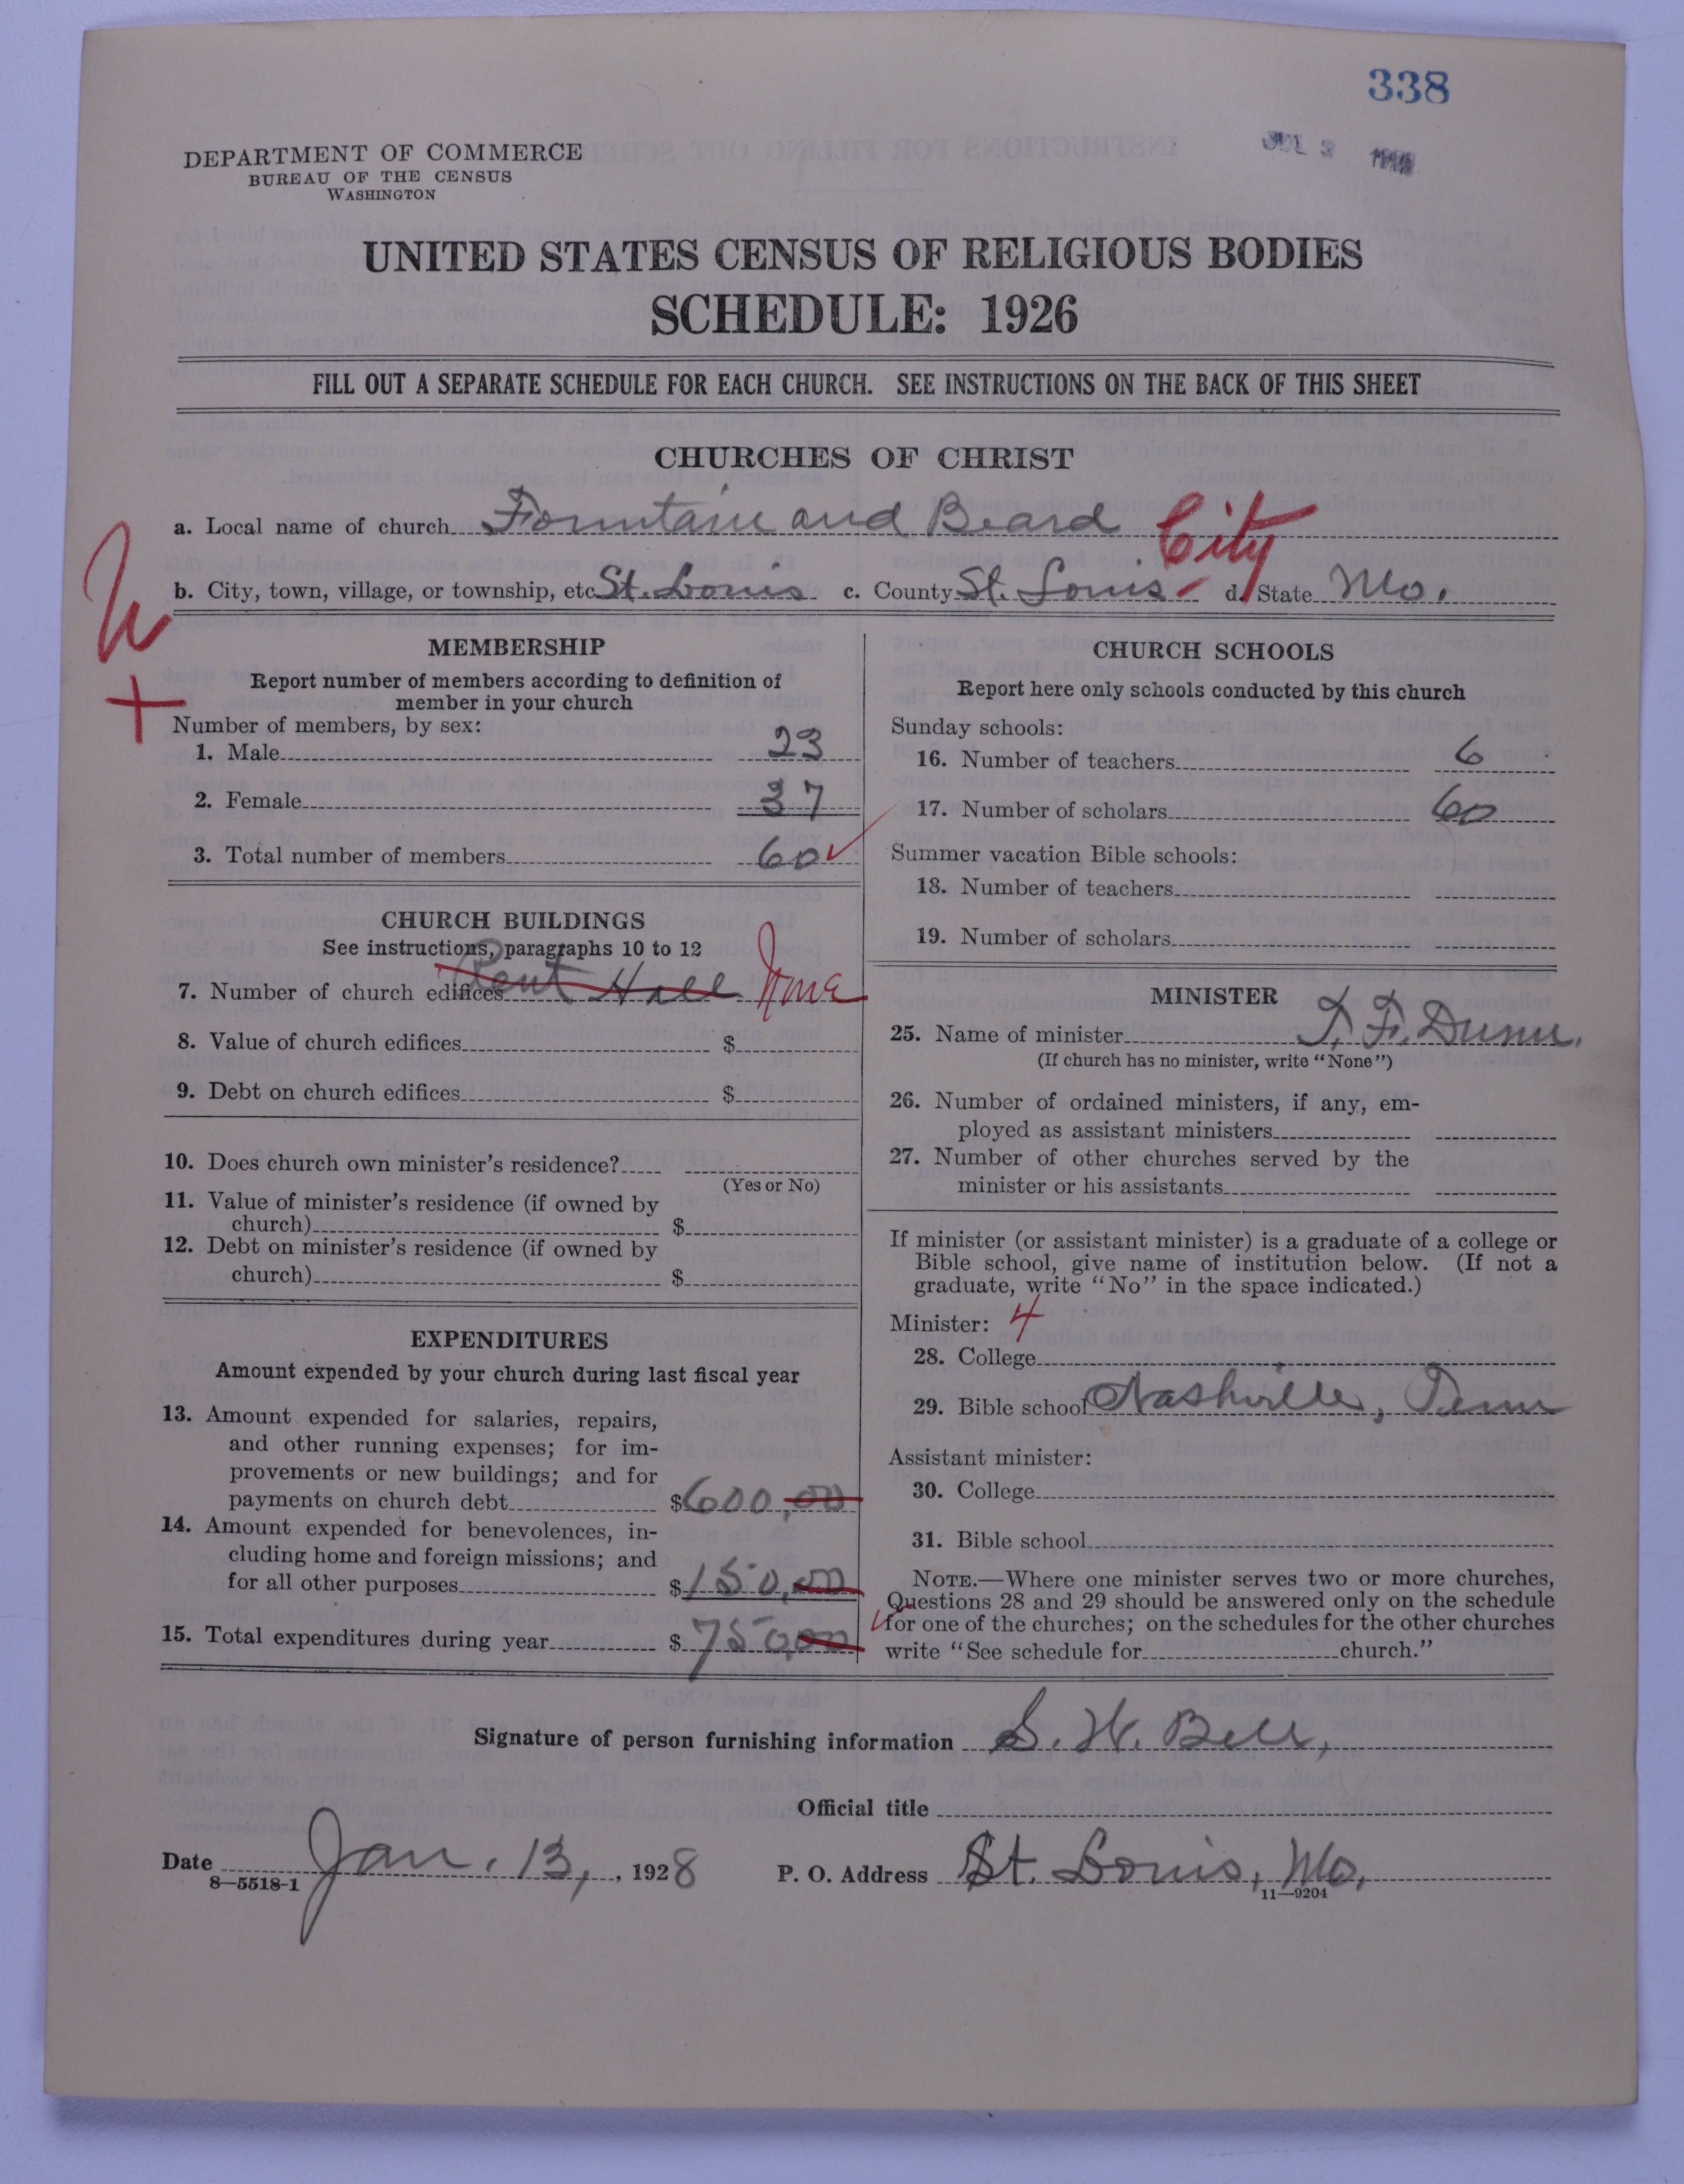 338
JUL 3
DEPARTMENT OF COMMERCE
BUREAU OF THE CENSUS
WASHINGTON
UNITED STATES CENSUS OF RELIGIOUS BODIES
SCHEDULE: 1926
FILL OUT A SEPARATE SCHEDULE FOR EACH CHURCH. SEE INSTRUCTIONS ON THE BACK OF THIS SHEET
CHURCHES OF CHRIST
a. Local name of church Fountain and Beard
City
b. City, town, village, or township, etc. St. Louis c. County St. Louis d. State Mo.
MEMBERSHIP
Report number of members according to definition of
member in your church
Number of members, by sex:
1. Male 23
2. Female 37
3. Total number of members 60
CHURCH BUILDINGS
See instructions, paragraphs 10 to 12
7. Number of church edifices Rent Hall None
8. Value of church edifices $
9. Debt on church edifices $
10. Does church own minister's residence?
(Yes or No)
11. Value of minister's residence (if owned by
church) $
12. Debt on minister's residence (if owned by
church) $
EXPENDITURES
Amount expended by your church during last fiscal year
13. Amount expended for salaries, repairs,
and other running expenses; for im-
provements or new buildings; and for
payments on church debt $600.00
14. Amount expended for benevolences, in-
cluding home and foreign missions; and
for all other purposes $150.00
15. Total expenditures during year $750.00
CHURCH SCHOOLS
Report here only schools conducted by this church
Sunday schools:
16. Number of teachers 6
17. Number of scholars 60
Summer vacation Bible schools:
18. Number of teachers
19. Number of scholars
MINISTER
25. Name of minister T. F. Dunn.
(If church has no minister, write "None")
26. Number of ordained ministers, if any, em-
ployed as assistant ministers
27. Number of other churches served by the
minister or his assistants
If minister (or assistant minister) is a graduate of a college or
Bible school, give name of institution below. (If not a
graduate, write "No" in the space indicated.)
Minister: 4
28. College
29. Bible school Nashville, Tenn
Assistant minister:
30. College
31. Bible school
NOTE.—Where one minister serves two or more churches,
Questions 28 and 29 should be answered only on the schedule
for one of the churches; on the schedules for the other churches
write "See schedule for church."
Signature of person furnishing information S. W. Bell,
Official title
Date Jan. 13, , 1928 P. O. Address St. Louis, Mo.
8—5518-1
11—9204